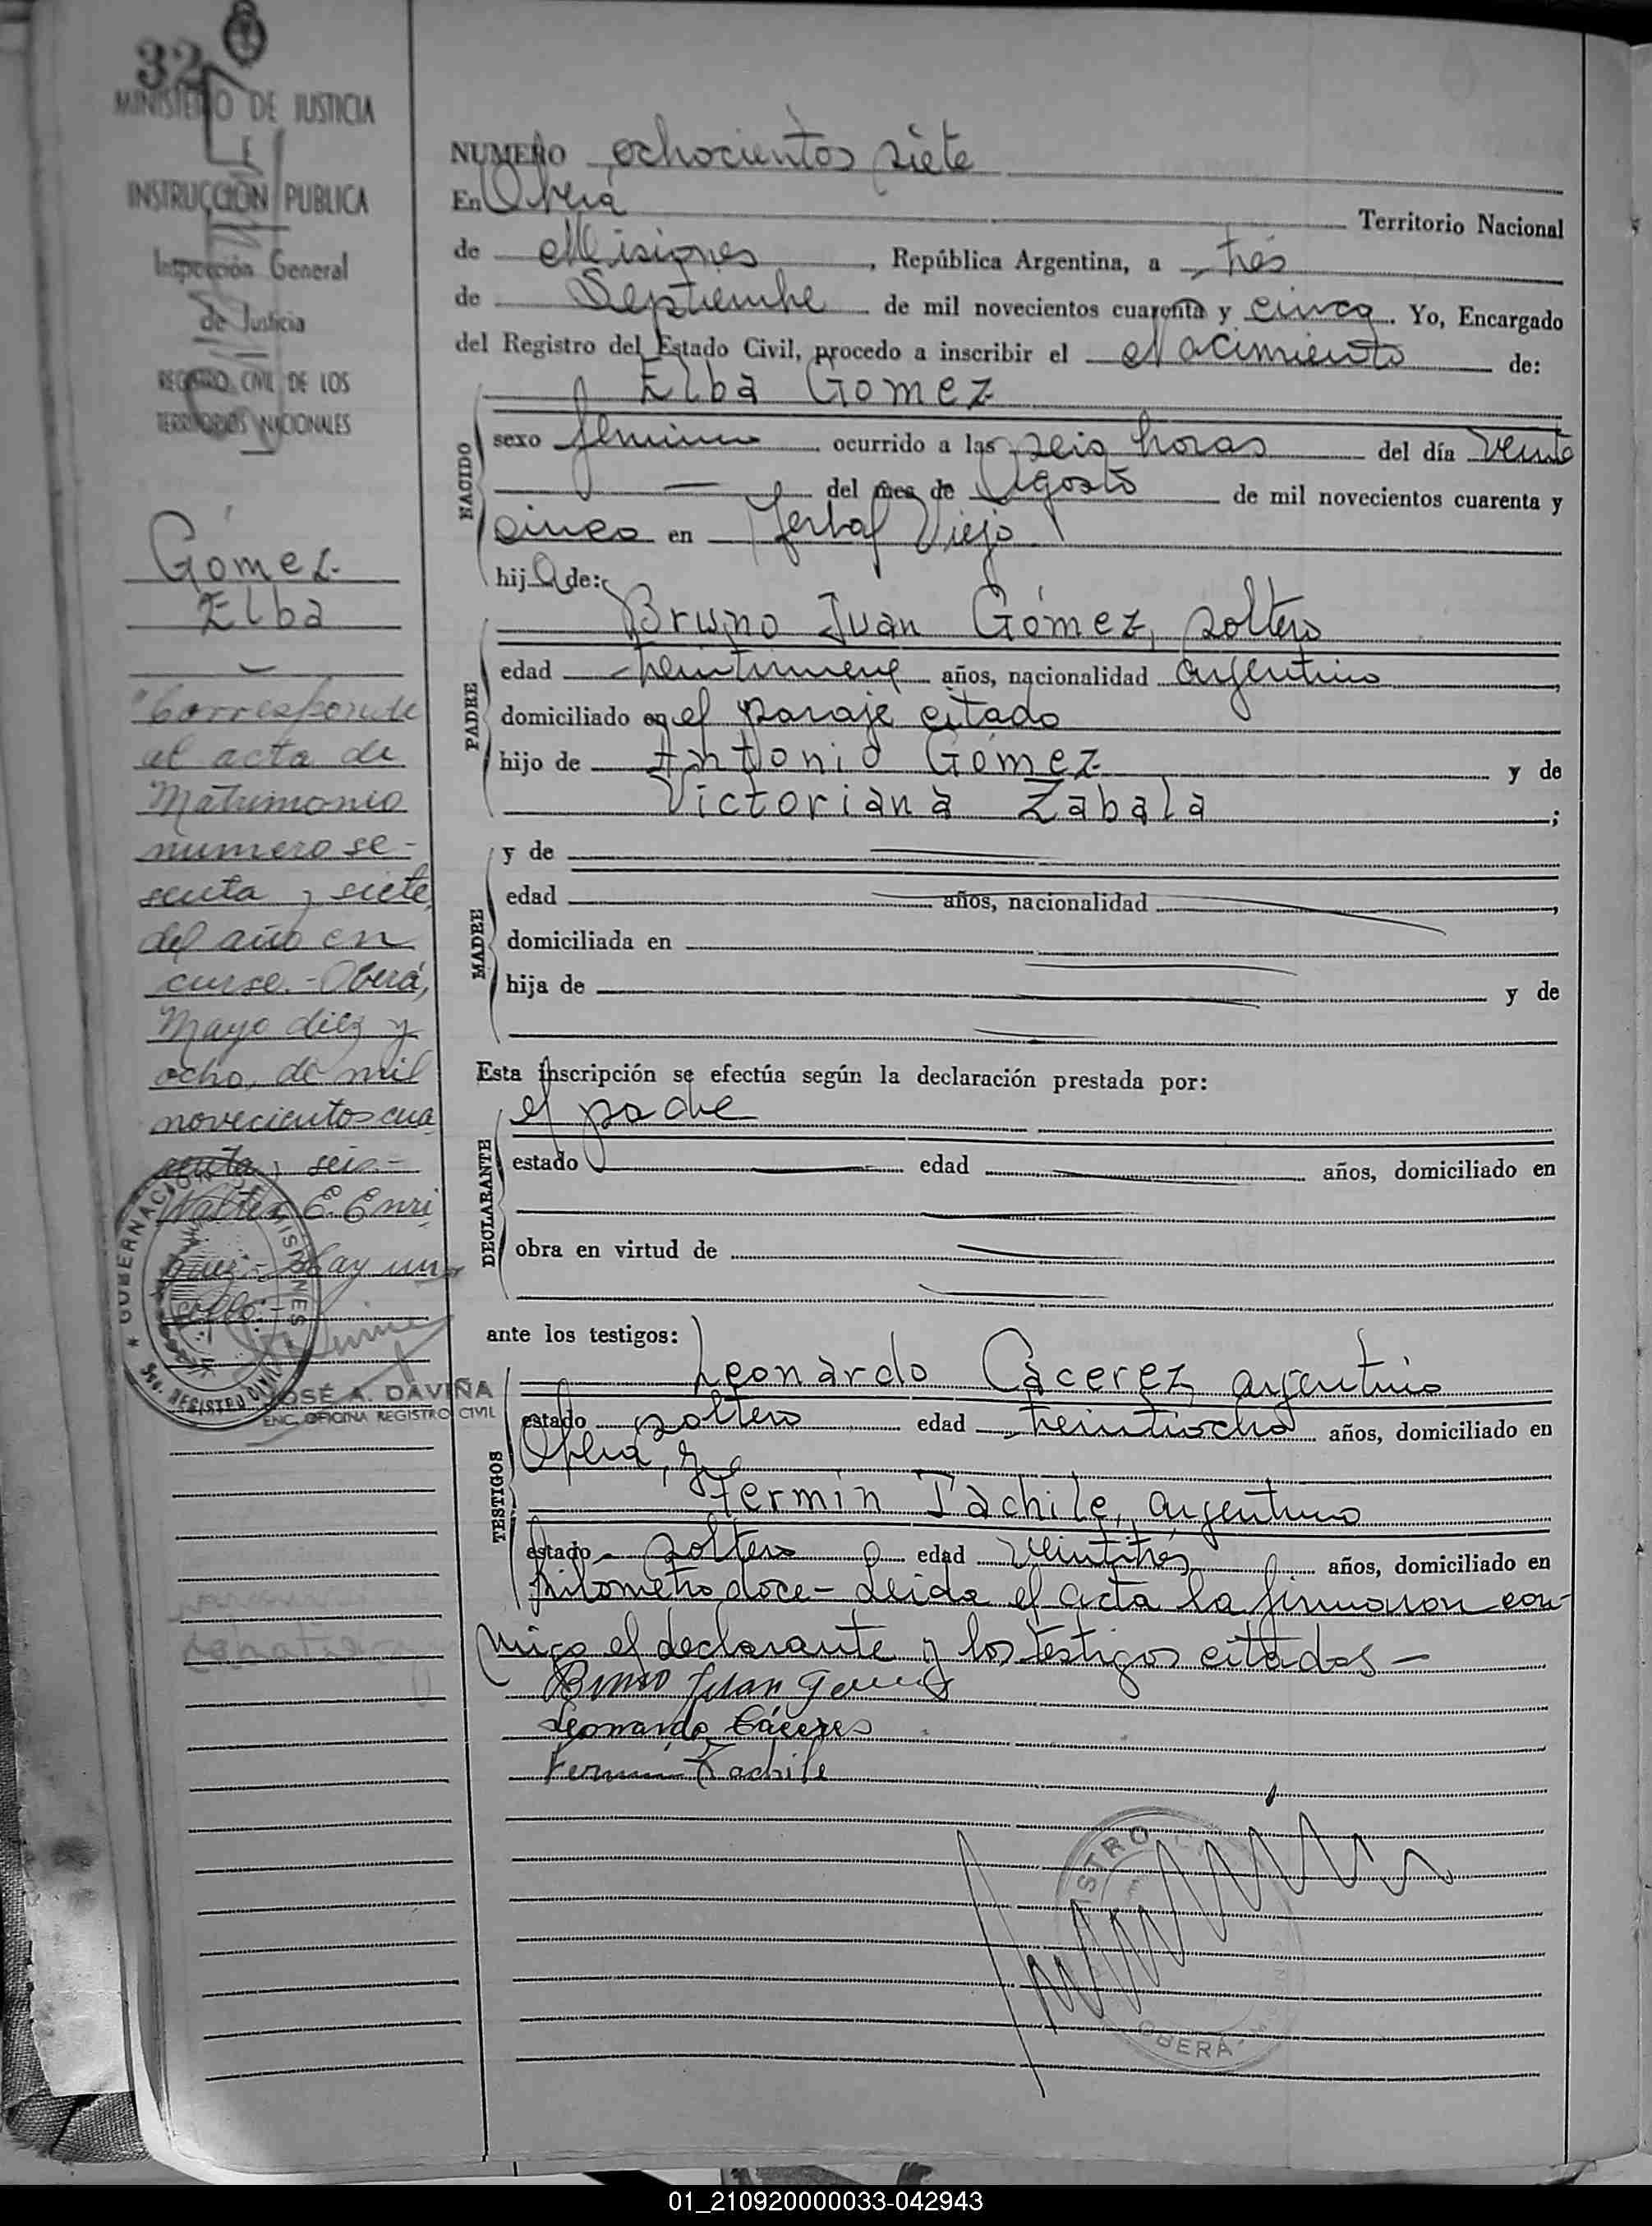 32
MINISTERIO DE JUSTICIA
E
INSTRUCCIÓN PUBLICA
Inspección General
de Justicia
REGISTRO CIVIL DE LOS
TERRITORIOS NACIONALES
Gómez
Elba
"Corresponde
al acta de
Matrimonio
numero se-
senta y siete,
del año en
curso.- Oberá,
Mayo diez y
ocho, de mil
novecientos cua
renta y seis-
Walter E. Enri
quez.- Hay un
sello:-
GOBERNACIÓN DE MISIONES
REGISTRO CIVIL
JOSÉ A. DAVIÑA
ENC. OFICINA REGISTRO CIVIL
NUMERO ochocientos siete
En Oberá Territorio Nacional
de Misiones, República Argentina, a tres
de Septiembre de mil novecientos cuarenta y cinco. Yo, Encargado
del Registro del Estado Civil, procedo a inscribir el Nacimiento de:
Elba Gomez
NACIDO
sexo femenino ocurrido a las seis horas del día veinte
— del mes de Agosto de mil novecientos cuarenta y
cinco en Yerbal Viejo
hija de:
Bruno Juan Gómez, soltero
PADRE
edad años, nacionalidad argentino,
domiciliado en el paraje citado
hijo de Antonio Gómez y de
Victoriana Zabala;
MADRE
y de
edad años, nacionalidad ,
domiciliada en
hija de y de
Esta inscripción se efectúa según la declaración prestada por:
el padre
DECLARANTE
estado edad años, domiciliado en
obra en virtud de
ante los testigos:
Leonardo Cácerez, argentino
TESTIGOS
estado soltero edad treintiocho años, domiciliado en
Oberá, y
Fermin Tachile, argentino
estado soltero edad veintitrés años, domiciliado en
kilometro doce- Leida el acta la firmaron con-
migo el declarante y los testigos citados-
Bruno Juan Gomez
Leonardo Cáceres
Fermin Tachile
OBERÁ
01_210920000033-042943